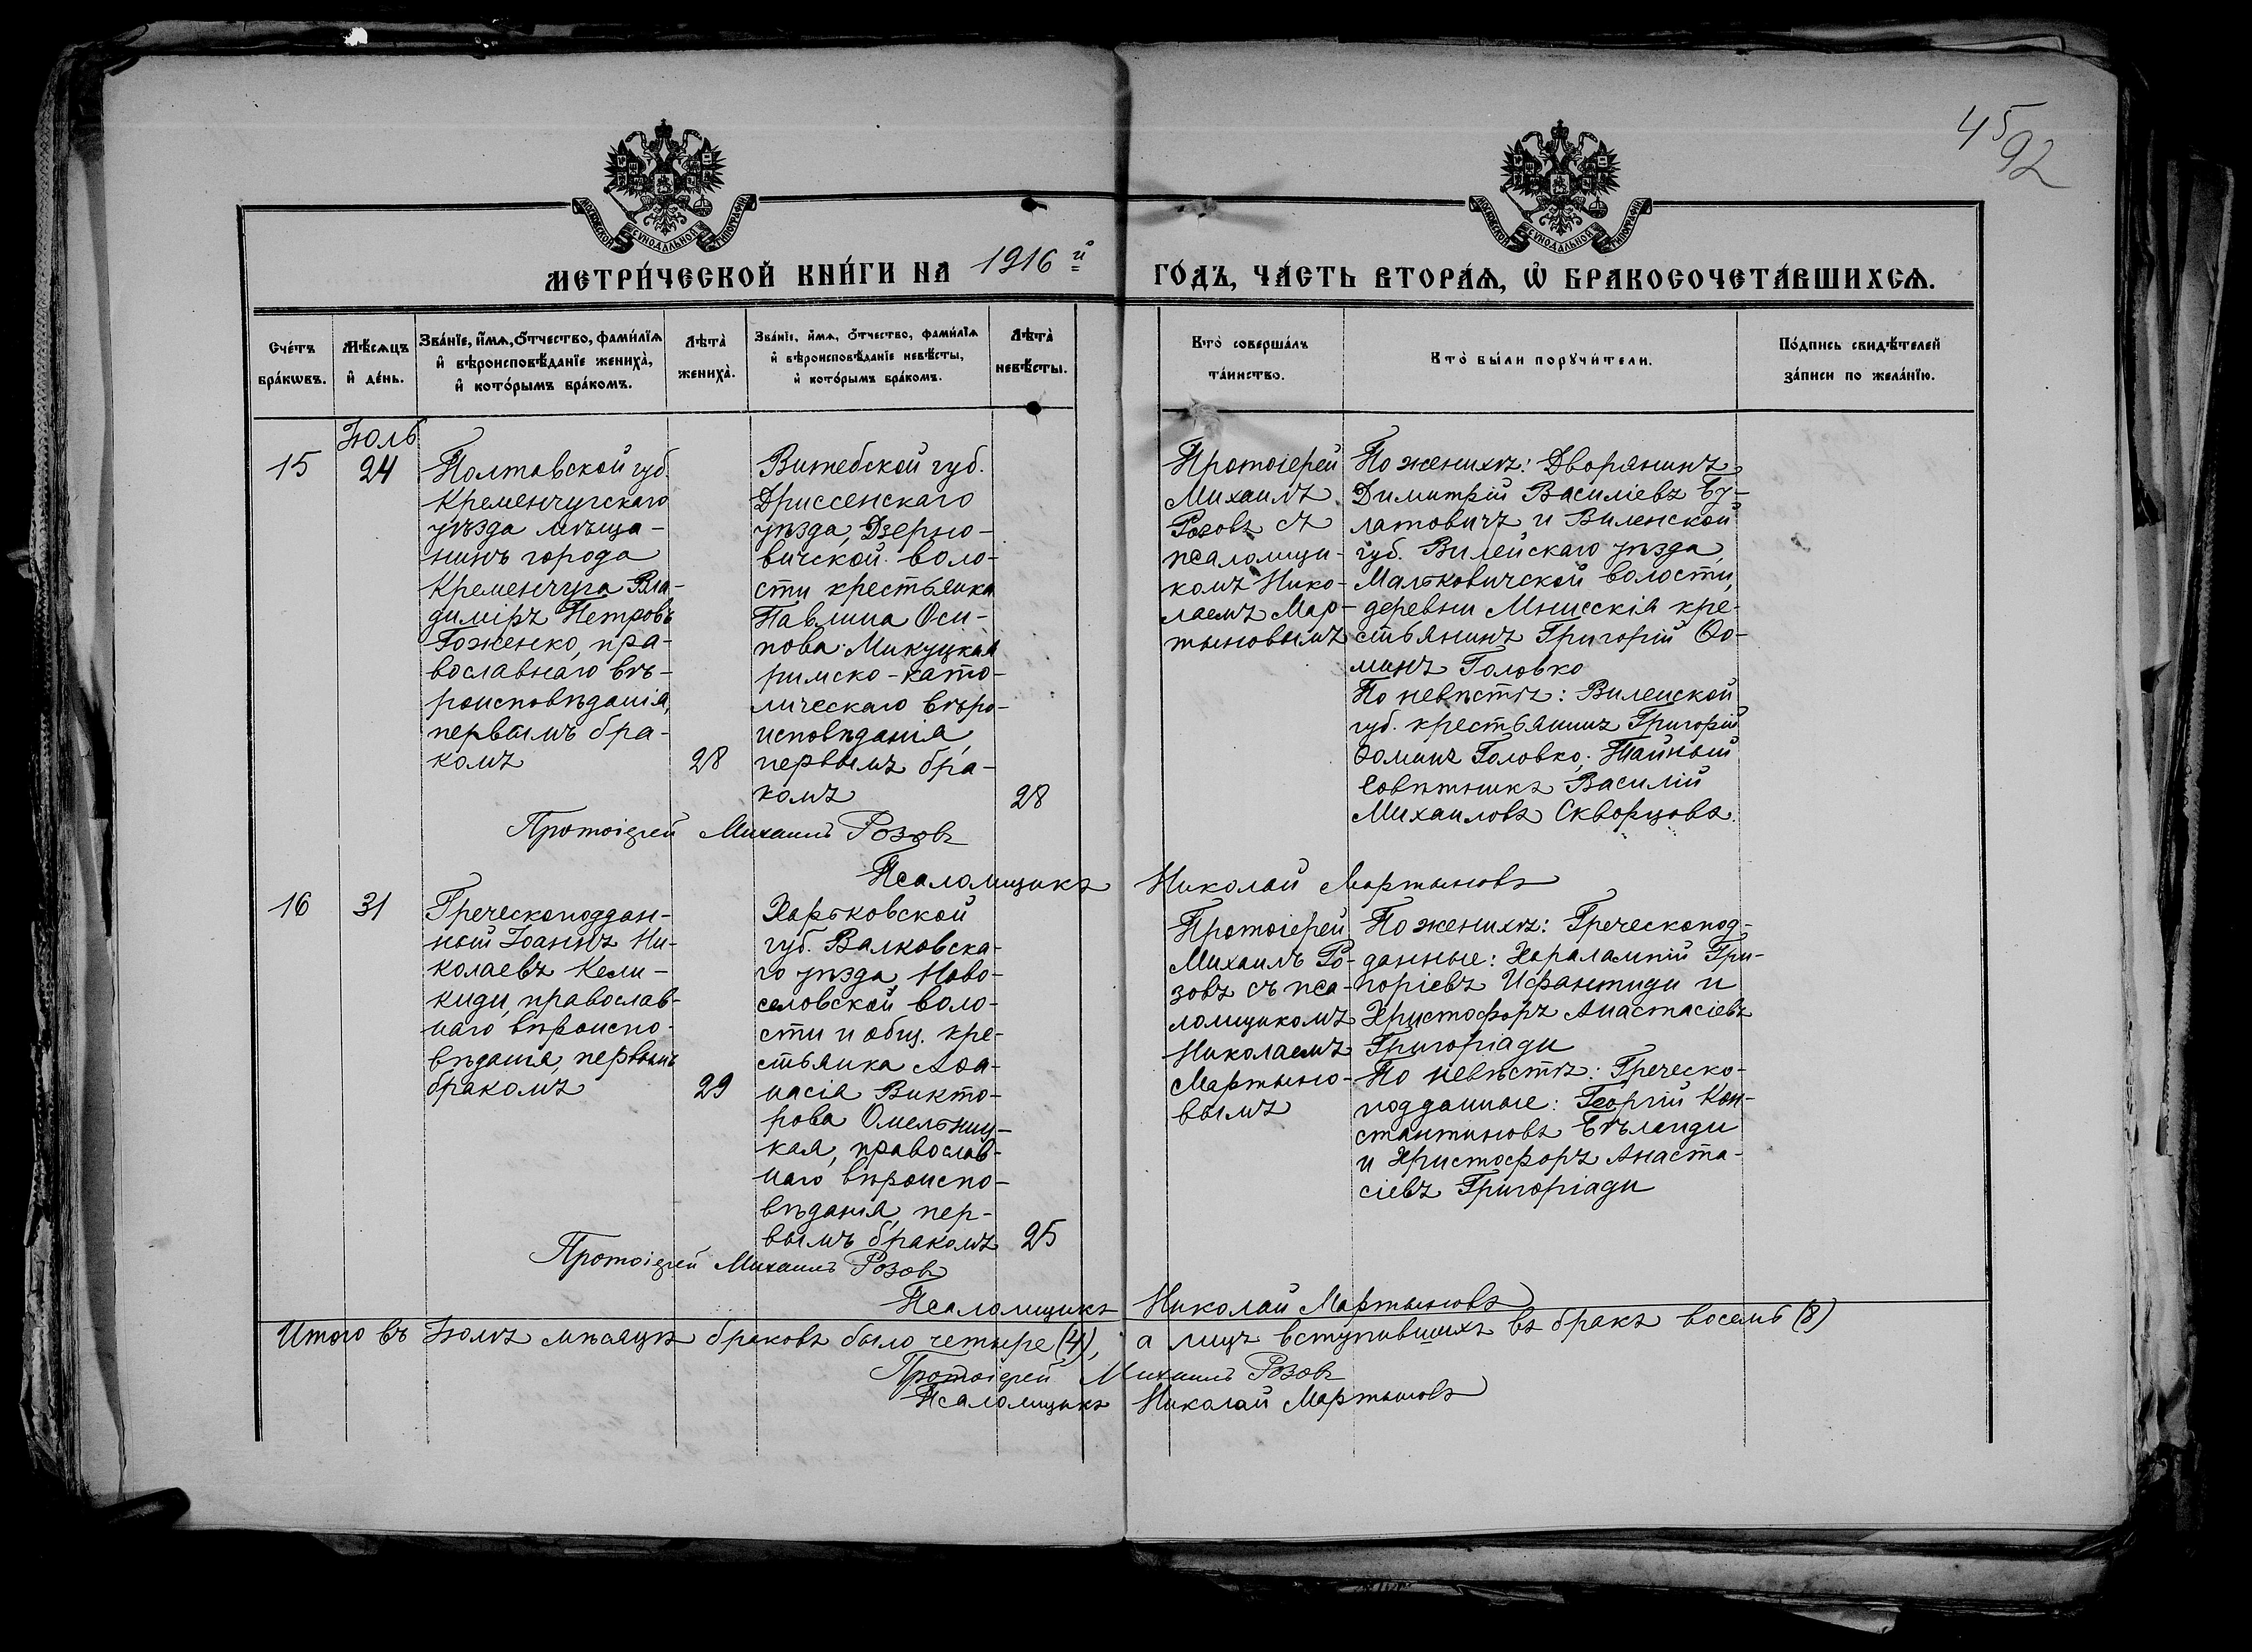 45
92
МОСКОВСКОЙ СѴНОДАЛЬНОЙ ТИПОГРАФІИ
МОСКОВСКОЙ СѴНОДАЛЬНОЙ ТИПОГРАФІИ
МЕТРИ́ЧЕСКОЙ КНИ́ГИ НА 1916й ГО́ДЪ, ЧА́СТЬ ВТОРА́Ѧ, Ѡ҆ БРАКОСОЧЕТА́ВШИХСѦ.
Сче́тъ
бра́кѡвъ.
Мѣ́сѧцъ
и҆ де́нь.
Зва́нїе, и҆́мѧ, ѻ҆́тчество, фами́лїѧ
и҆ вѣроисповѣ́данїе жениха̀,
и҆ кото́рымъ бра́комъ.
Лѣ́та̀
жениха̀.
Зва́нїе, и҆́мѧ, ѻ҆́тчество, фами́лїѧ
и҆ вѣроисповѣ́данїе невѣ́сты,
и҆ кото́рымъ бра́комъ.
Лѣ́та̀
невѣ́сты.
Кто̀ соверша́лъ
та́инство.
Кто̀ бы́ли порꙋчи́тели.
По́дпись свидѣ́телей
за́писи по жела́нїю.
Іюль
15
24
Полтавской губ.
Кременчугскаго
уѣзда мѣща-
нинъ города
Кременчуга Вла-
диміръ Петровъ
Гоженко, пра-
вославнаго вѣ-
роисповѣданія,
первымъ бра-
комъ
28
Витебской губ.
Дриссенскаго
уѣзда, Дзерно-
вичской воло-
сти крестьянка
Павлина Оси-
пова Микуцкая
римско-като-
лическаго вѣро-
исповѣданія,
первымъ бра-
комъ
28
Протоіерей
Михаилъ
Розовъ съ
псаломщи-
комъ Нико-
лаемъ Мар-
тыновымъ
По женихѣ: Дворянинъ
Димитрій Василіевъ Бу-
латовичъ и Виленской
губ. Вилейскаго уѣзда,
Мальковичской волости,
деревни Мнисскія кре-
стьянинъ Григорій Ѳо-
минъ Головко
По невѣстѣ: Виленской
губ. крестьянинъ Григорій
Ѳоминъ Головко; Тайный
Совѣтникъ Василій
Михаиловъ Скворцовъ.
Протоіерей Михаилъ Розовъ
Псаломщикъ Николай Мартыновъ
16
31
Греческоподдан-
ный Іоаннъ Ни-
колаевъ Кели-
киди, православ-
наго вѣроиспо-
вѣданія, первымъ
бракомъ
29
Харьковской
губ. Валковска-
го уѣзда, Ново-
селовской воло-
сти и общ. кре-
стьянка Аѳа-
насія Викто-
рова Омельниц-
кая, православ-
наго вѣроиспо-
вѣданія, пер-
вымъ бракомъ
25
Протоіерей
Михаилъ Ро-
зовъ съ пса-
ломщикомъ
Николаемъ
Мартыно-
вымъ
По женихѣ: Греческопод-
данные: Харалампій Гри-
горіевъ Исфантиди и
Христофоръ Анастасіевъ
Григоріади
По невѣстѣ: Греческо-
подданные: Георгій Кон-
стантиновъ Евланди
и Христофоръ Анаста-
сіевъ Григоріади
Протоіерей Михаилъ Розовъ
Псаломщикъ Николай Мартыновъ
Итого въ Іюлѣ мѣсяцѣ браковъ было четыре (4), а лицъ вступившихъ въ бракъ восемь (8)
Протоіерей Михаилъ Розовъ
Псаломщикъ Николай Мартыновъ